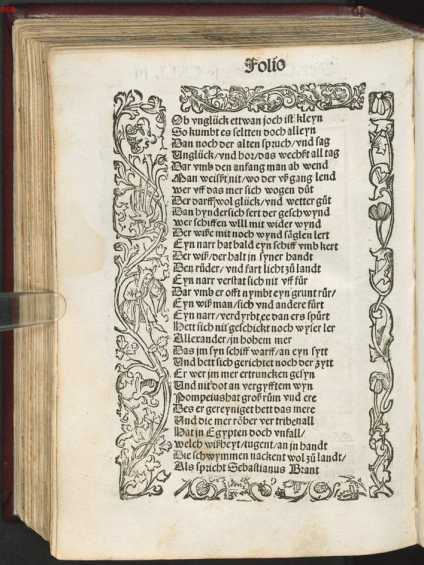 Folio
Ob vnglück ettwan joch ist kleyn
So kumbt es seltten doch alleyn
Dan noch der alten spruch/vnd sag
Unglück/vnd hor/das wechßt all tag
Dar vmb den anfang man ab wend
Man weißt nit/wo der vßgang lend
wer vff das mer sich wogen důt
Der darff wol glück/vnd wetter gůt
Dan hyndersich fert der geschwynd
wer schiffen will mit wider wynd
Der wiß mit noch wynd säglen lert
Eyn narr hat bald eyn schiff vmb kert
Der wiß/der halt in syner handt
Den růder/vnd fart licht zů landt
Eyn narr verstat sich nit vff für
Dar vmb er offt nymbt eyn grunt rür/
Eyn wiß man/sich vnd andere fürt
Eyn narr/verdyrbt/ee dan ers spürt
Hett sich nit geschickt noch wyser ler
Allexander/in hohem mer
Das jm syn schiff warff/an eyn sytt
Und hett sich gerichtet noch der zytt
Er wer jm mer ertruncken gesyn
Und nit dot an vergyfftem wyn
Pompeius hat groß rům vnd ere
Des er gereyniget hett das mere
Und die mer röber vertriben all
Hat in Egypten doch vnfall/
welch wißheyt/tugent/an jn handt
Die schwymmen nackent wol zů landt/
Als spricht Sebastianus Brant